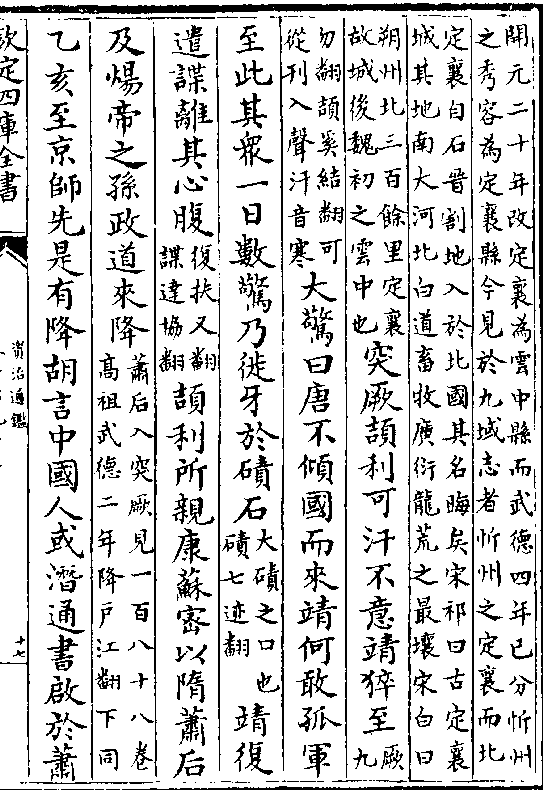 開元二十年改定襄為雲中縣而武德四年已分忻州
之秀容為定襄縣今見於九域志者忻州之定襄而北
定襄自石晉割地入於北國其名晦矣宋祁曰古定襄
城其地南大河北白道畜牧廣衍龍荒之最壤宋白曰
朔州北三百餘里定襄
故城後魏初之雲中也
突厥頡利可汗不意靖猝至
厥
九
勿翻頡奚結翻可
從刊入聲汗音寒
大驚曰唐不傾國而來靖何敢孤軍
至此其衆一日數驚乃徙牙於磧石
大磧之口也
磧七迹翻
靖復
遣諜離其心腹
復扶又翻
諜達協翻
頡利所親康蘇宻以隋蕭后
及煬帝之孫政道來降
蕭后入突厥見一百八十八卷
高祖武德二年降戶江翻下同
乙亥至京師先是有降胡言中國人或潛通書啟於蕭
欽定四庫全書
資治通鑑
十七